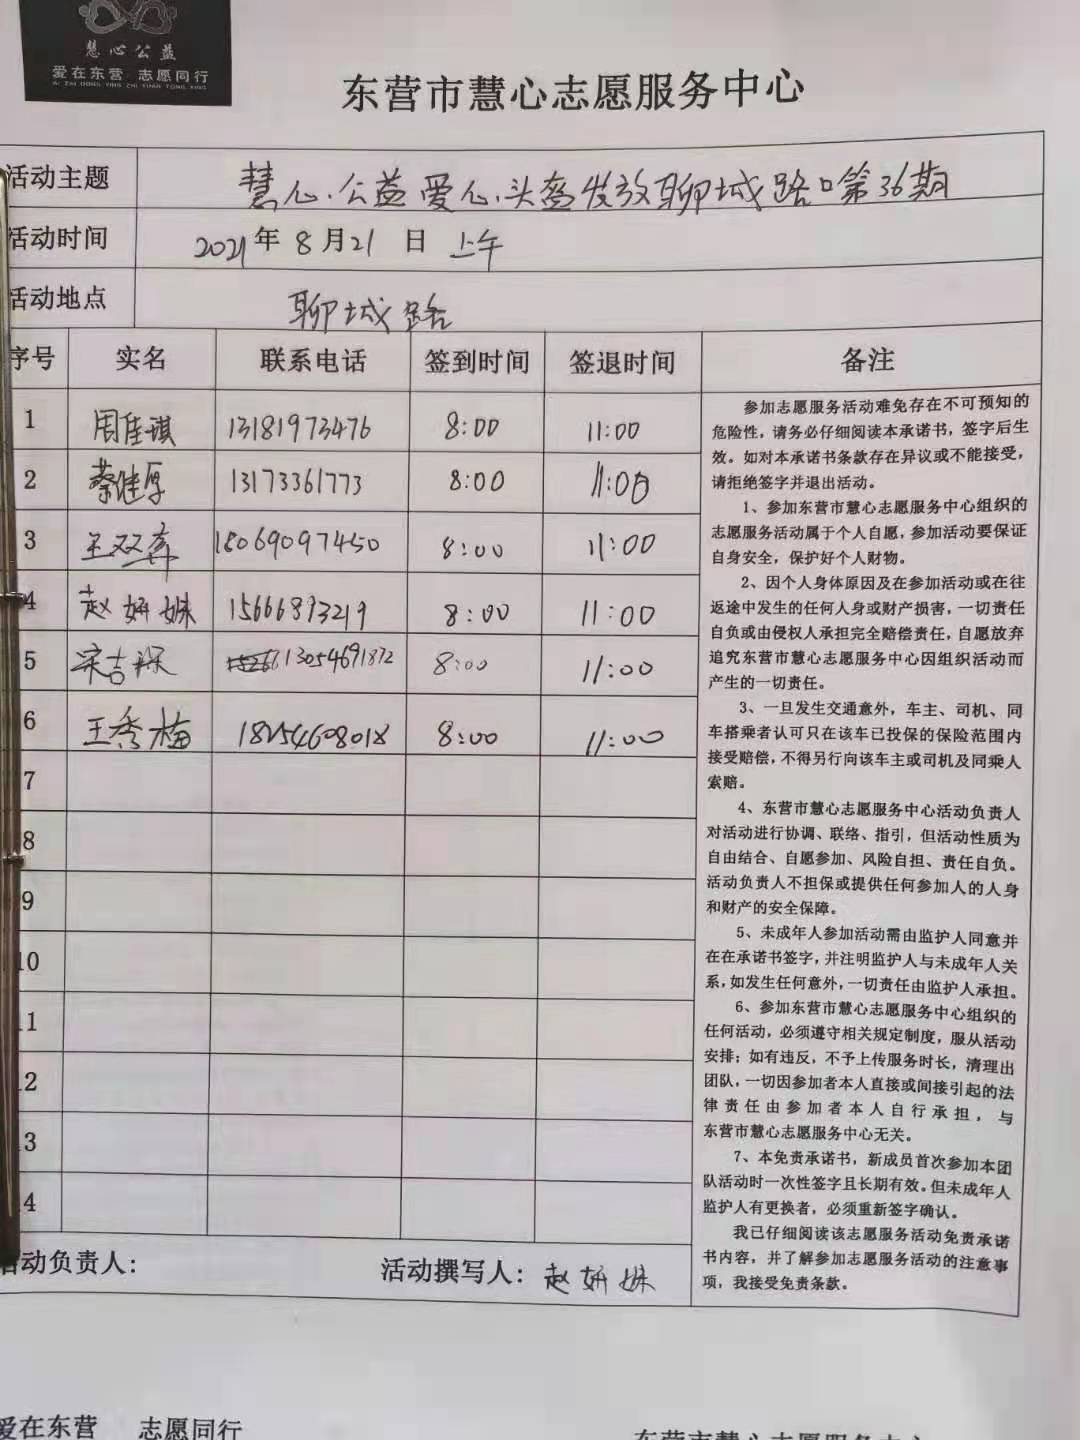 慧心公益
爱在东营 志愿同行
AI ZAI DONG YING ZHI YUAN TONG XING
东营市慧心志愿服务中心
活动主题 慧心公益爱心头盔发放聊城路口第36期
活动时间 2021年8月21日 上午
活动地点 聊城路
序号 实名 联系电话 签到时间 签退时间 备注
1 周佳琪 13181973476 8:00 11:00
2 蔡健厚 13173361773 8:00 11:00
3 王双 18069097450 8:00 11:00
4 赵妍姝 15666893219 8:00 11:00
5 宋吉 13054691872 8:00 11:00
6 王秀梅 18254608018 8:00 11:00
7
8
9
10
11
12
13
14
参加志愿服务活动难免存在不可预知的
危险性，请务必仔细阅读本承诺书，签字后生
效。如对本承诺书条款存在异议或不能接受，
请拒绝签字并退出活动。
1、参加东营市慧心志愿服务中心组织的
志愿服务活动属于个人自愿，参加活动要保证
自身安全，保护好个人财物。
2、因个人身体原因及在参加活动或在往
返途中发生的任何人身或财产损害，一切责任
自负或由侵权人承担完全赔偿责任，自愿放弃
追究东营市慧心志愿服务中心因组织活动而
产生的一切责任。
3、一旦发生交通意外，车主、司机、同
车搭乘者认可只在该车已投保的保险范围内
接受赔偿，不得另行向该车主或司机及同乘人
索赔。
4、东营市慧心志愿服务中心活动负责人
对活动进行协调、联络、指引，但活动性质为
自由结合、自愿参加、风险自担、责任自负。
活动负责人不担保或提供任何参加人的人身
和财产的安全保障。
5、未成年人参加活动需由监护人同意并
在在承诺书签字，并注明监护人与未成年人关
系，如发生任何意外，一切责任由监护人承担。
6、参加东营市慧心志愿服务中心组织的
任何活动，必须遵守相关规定制度，服从活动
安排；如有违反，不予上传服务时长，清理出
团队，一切因参加者本人直接或间接引起的法
律责任由参加者本人自行承担，与
东营市慧心志愿服务中心无关。
7、本免责承诺书，新成员首次参加本团
队活动时一次性签字且长期有效。但未成年人
监护人有更换者，必须重新签字确认。
我已仔细阅读该志愿服务活动免责承诺
书内容，并了解参加志愿服务活动的注意事
项，我接受免责条款。
活动负责人： 活动撰写人：赵妍姝
爱在东营 志愿同行 东营市慧心志愿服务中心